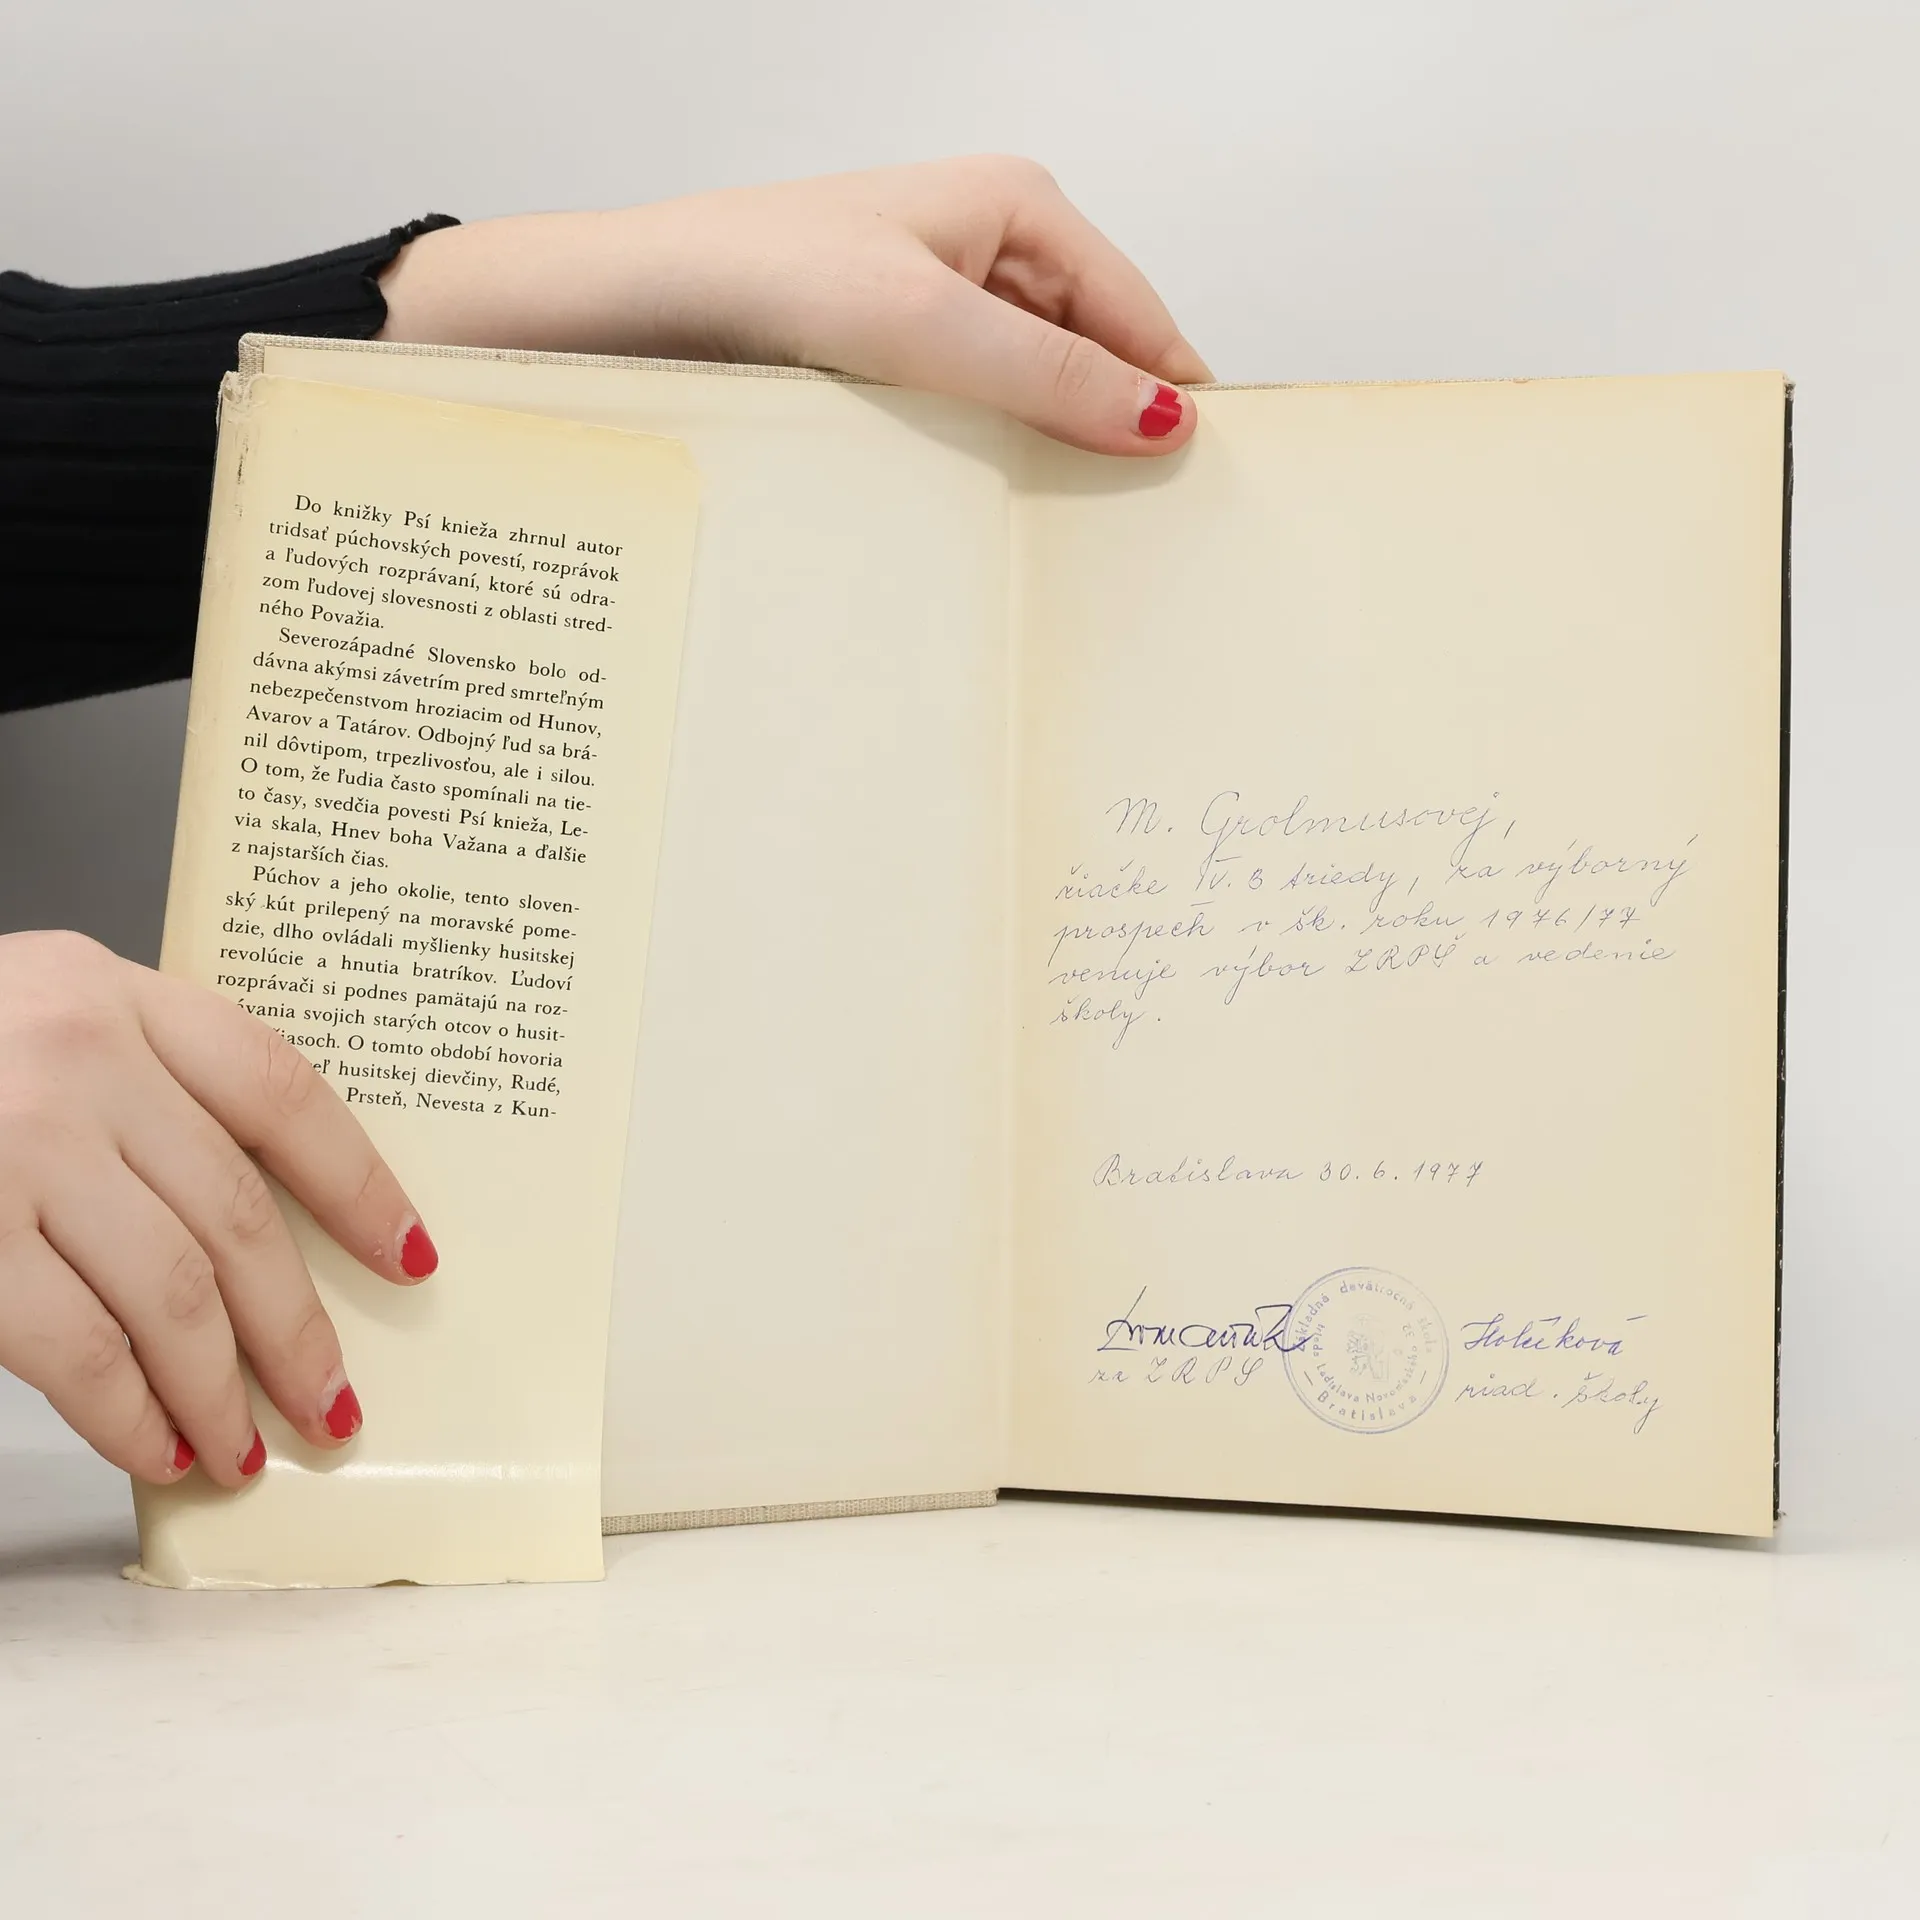 Do knižky Psí knieža zhrnul autor
tridsať púchovských povestí, rozprávok
a ľudových rozprávaní, ktoré sú odra-
zom ľudovej slovesnosti z oblasti stred-
ného Považia.
Severozápadné Slovensko bolo od-
dávna akýmsi závetrím pred smrteľným
nebezpečenstvom hroziacim od Hunov,
Avarov a Tatárov. Odbojný ľud sa brá-
nil dôvtipom, trpezlivosťou, ale i silou.
O tom, že ľudia často spomínali na tie-
to časy, svedčia povesti Psí knieža, Le-
via skala, Hnev boha Važana a ďalšie
z najstarších čias.
Púchov a jeho okolie, tento sloven-
ský kút prilepený na moravské pome-
dzie, dlho ovládali myšlienky husitskej
revolúcie a hnutia bratríkov. Ľudoví
rozprávači si podnes pamätajú na roz-
ávania svojich starých otcov o husit-
iasoch. O tomto období hovoria
eľ husitskej dievčiny, Rudé,
Prsteň, Nevesta z Kun-
M. Grolmusovej,
žiačke IV. B triedy, za výborný
prospech v šk. roku 1976/77
venuje výbor ZRPŠ a vedenie
školy.
Bratislava 30. 6. 1977
za ZRPŠ
Základná deväťročná škola
Ladislava Novomeského
Bratislava
Holíčková
riad. školy